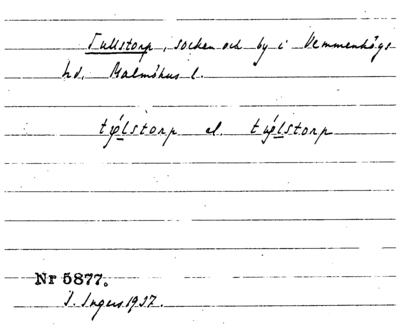 Tullstorp, socken och by i Vemmenhögs
hd, Malmöhus l.
tǿlstorp el. tǿlstorp
Nr 5877.
I. Ingers 1937.